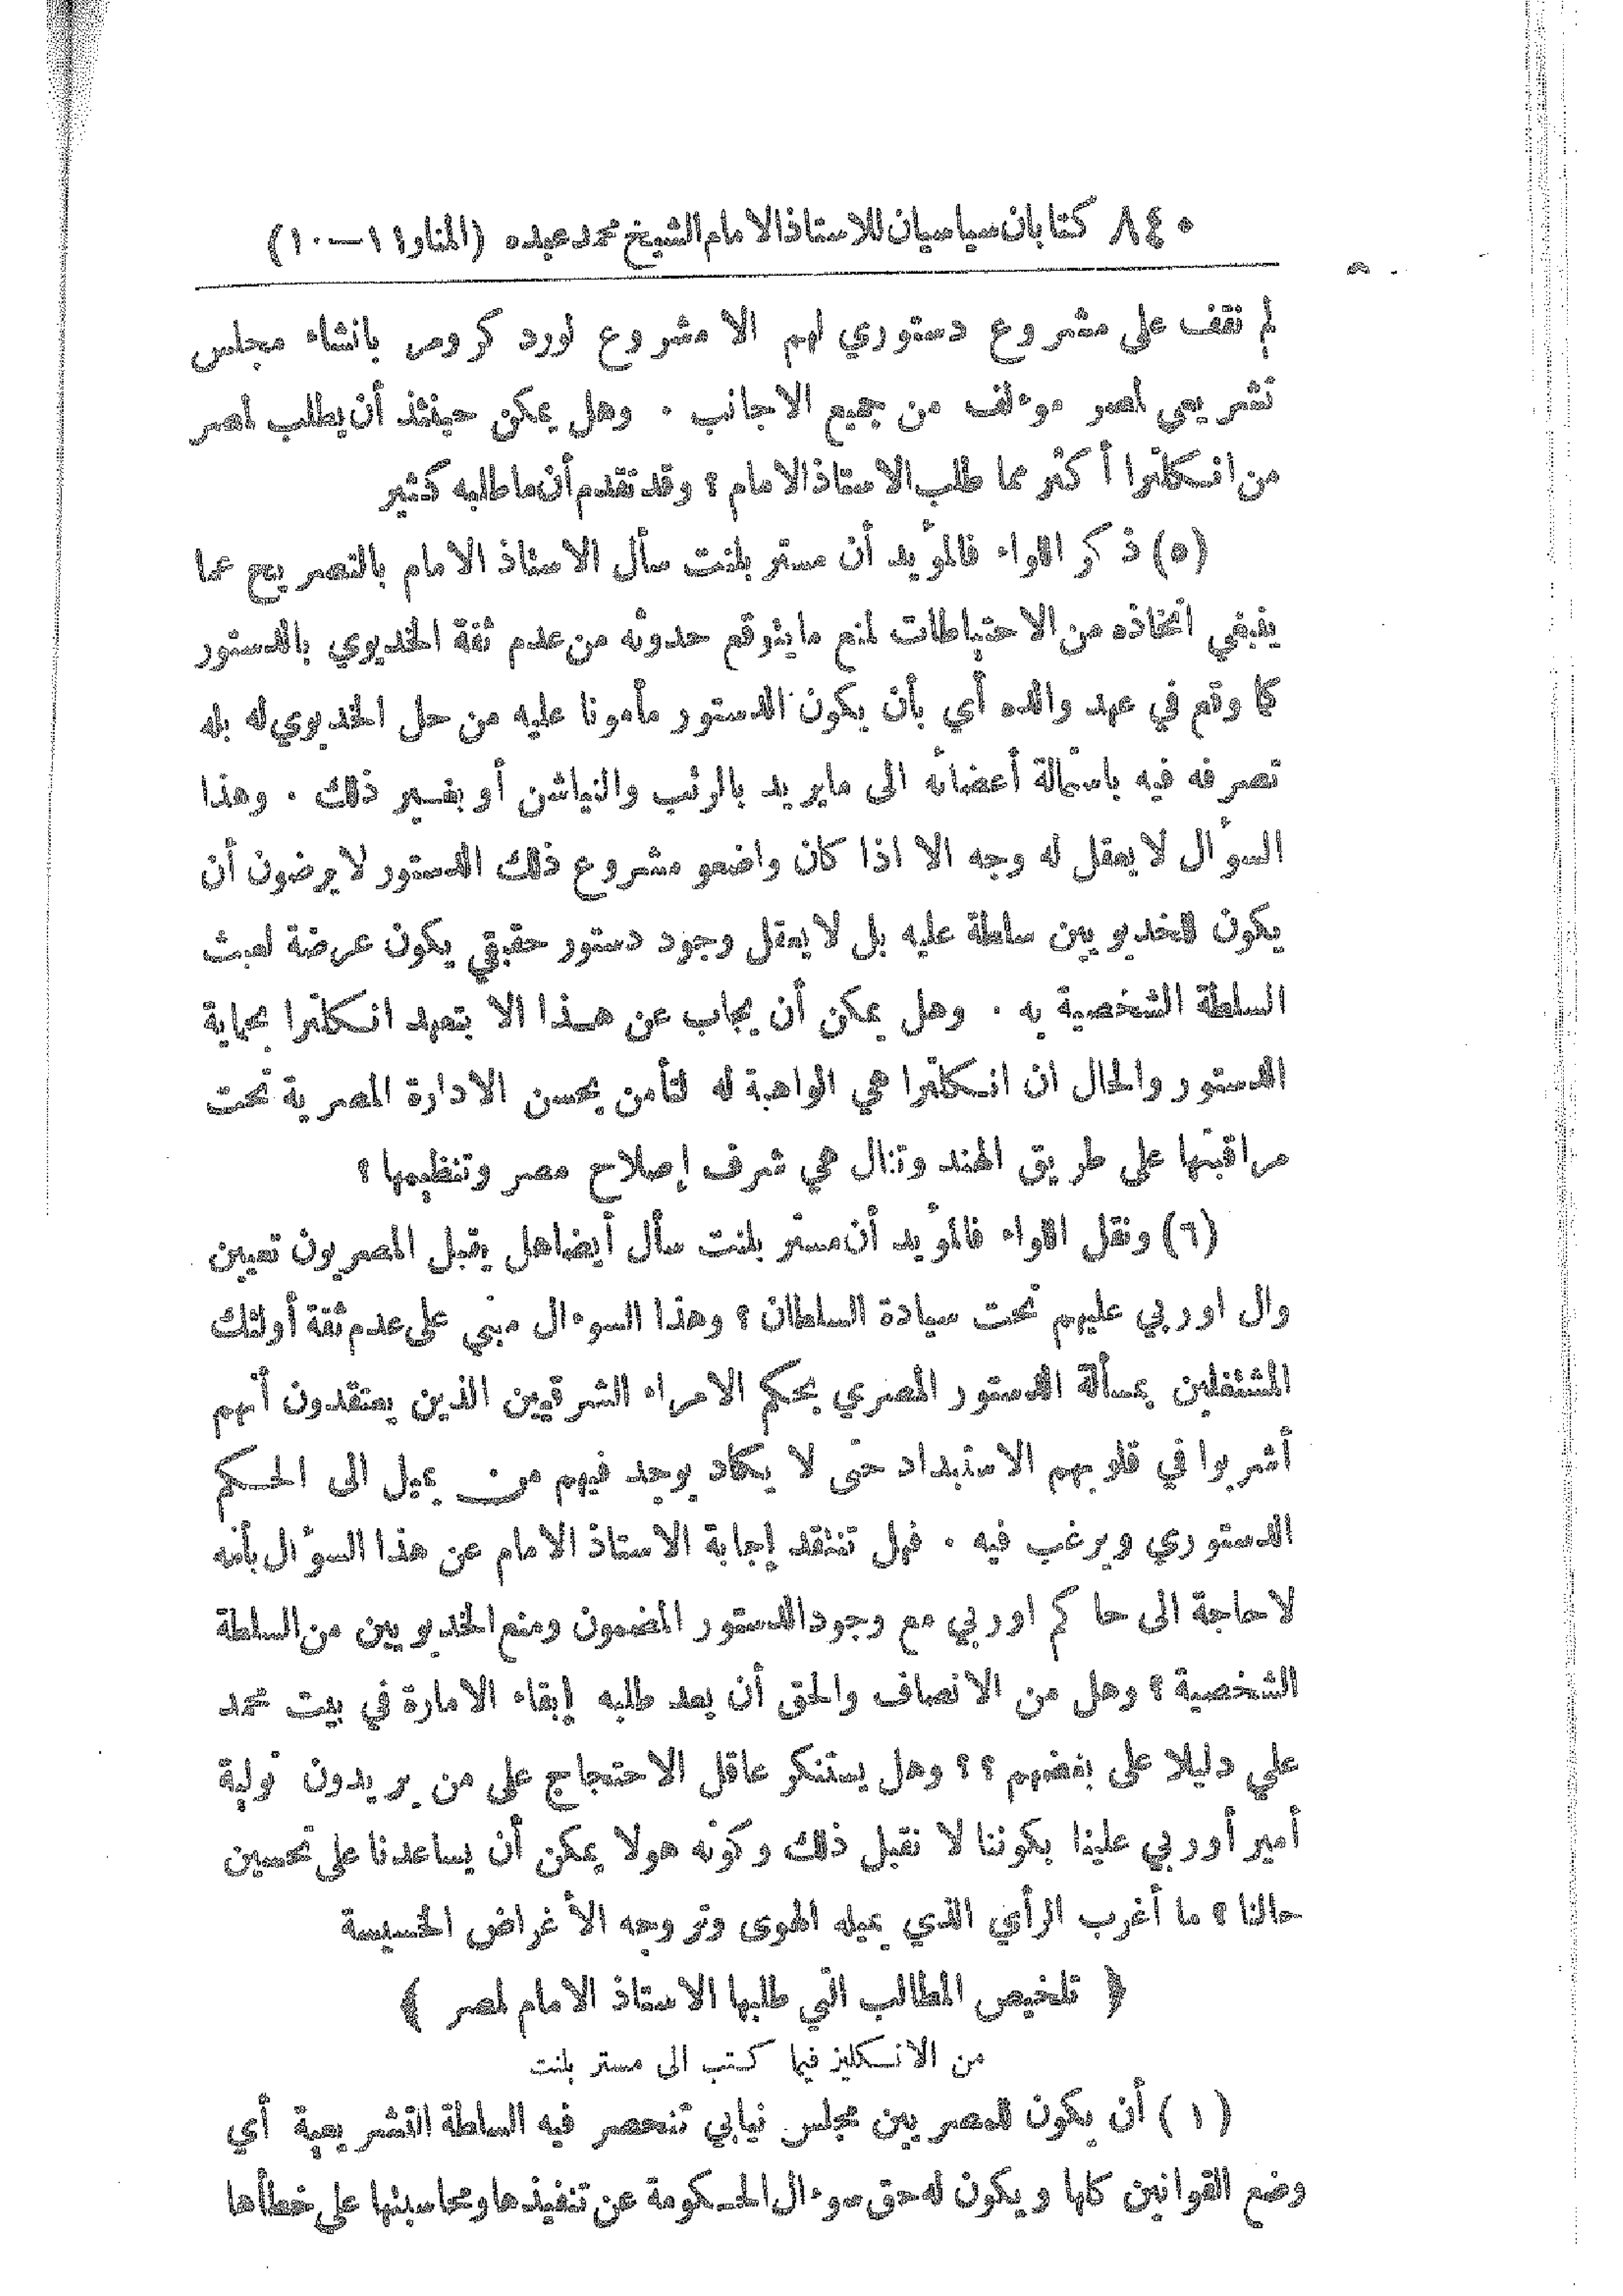 ٨٤٠ كتابان سياسيان للاستاذ الامام الشيخ محمد عبده (المنار ١١—١٠)
لم نقف على مشروع دستوري لهم الا مشروع لورد كرومر بانشاء مجلس
تشريعي لمصر موءلف من جميع الاجانب . وهل يمكن حينئذ أن يطلب لمصر
من انكلترا أكثر مما طلب الاستاذ الامام ؟ وقد تقدم أن ما طلبه كثير
(٥) ذكر اللواء فالمؤيد أن مستر بلنت سأل الاستاذ الامام بالتصريح عما
ينبغي اتخاذه من الاحتياطات لمنع ما يتوقع حدوثه من عدم ثقة الخديوي بالدستور
كما وقع في عهد والده أي بأن يكون الدستور مأمونا عليه من حل الخديوي له بله
تصرفه فيه باستمالة أعضائه الى ما يريد بالرتب والنياشن أو بغير ذلك . وهذا
السؤال لا يعقل له وجه الا اذا كان واضعو مشروع ذلك الدستور لا يرضون أن
يكون للخديويين سلطة عليه بل لا يعقل وجود دستور حقيقي يكون عرضة لعبث
السلطة الشخصية به . وهل يمكن أن يجاب عن هذا الا بتعهد انكلترا بحماية
الدستور والحال ان انكلترا هي الواهبة له لتأمن بحسن الادارة المصرية تحت
مراقبتها على طريق الهند وتنال هي شرف إصلاح مصر وتنظيمها ؟
(٦) ونقل اللواء فالمؤيد أن مستر بلنت سأل أيضا هل يقبل المصريون تعيين
وال اوربي عليهم تحت سيادة السلطان ؟ وهذا السوءال مبني على عدم ثقة أولئك
المشتغلين بمسألة الدستور المصري بحكم الامراء الشرقيين الذين يعتقدون أنهم
أشربوا في قلوبهم الاستبداد حتى لا يكاد يوجد فيهم من يميل الى الحكم
الدستوري ويرغب فيه . فهل تنتقد إجابة الاستاذ الامام عن هذا السؤال بأنه
لا حاجة الى حاكم اوربي مع وجود الدستور المضمون ومنع الخديويين من السلطة
الشخصية ؟ وهل من الانصاف والحق أن يعد طلبه إبقاء الامارة في بيت محمد
علي دليلا على بغضهم ؟؟ وهل يستنكر عاقل الاحتجاج على من يريدون تولية
أمير أوربي علينا بكوننا لا نقبل ذلك وكونه هو لا يمكن أن يساعدنا على تحسين
حالنا ؟ ما أغرب الرأي الذي يميله الهوى وتروجه الأغراض الخسيسة
﴿ تلخيص المطالب التي طلبها الاستاذ الامام لمصر ﴾
من الانكليز فيما كتب الى مستر بلنت
(١) أن يكون للمصريين مجلس نيابي تنحصر فيه السلطة التشريعية أي
وضع القوانين كلها ويكون له حق سوءال الحكومة عن تنفيذها ومحاسبتها على خطأها